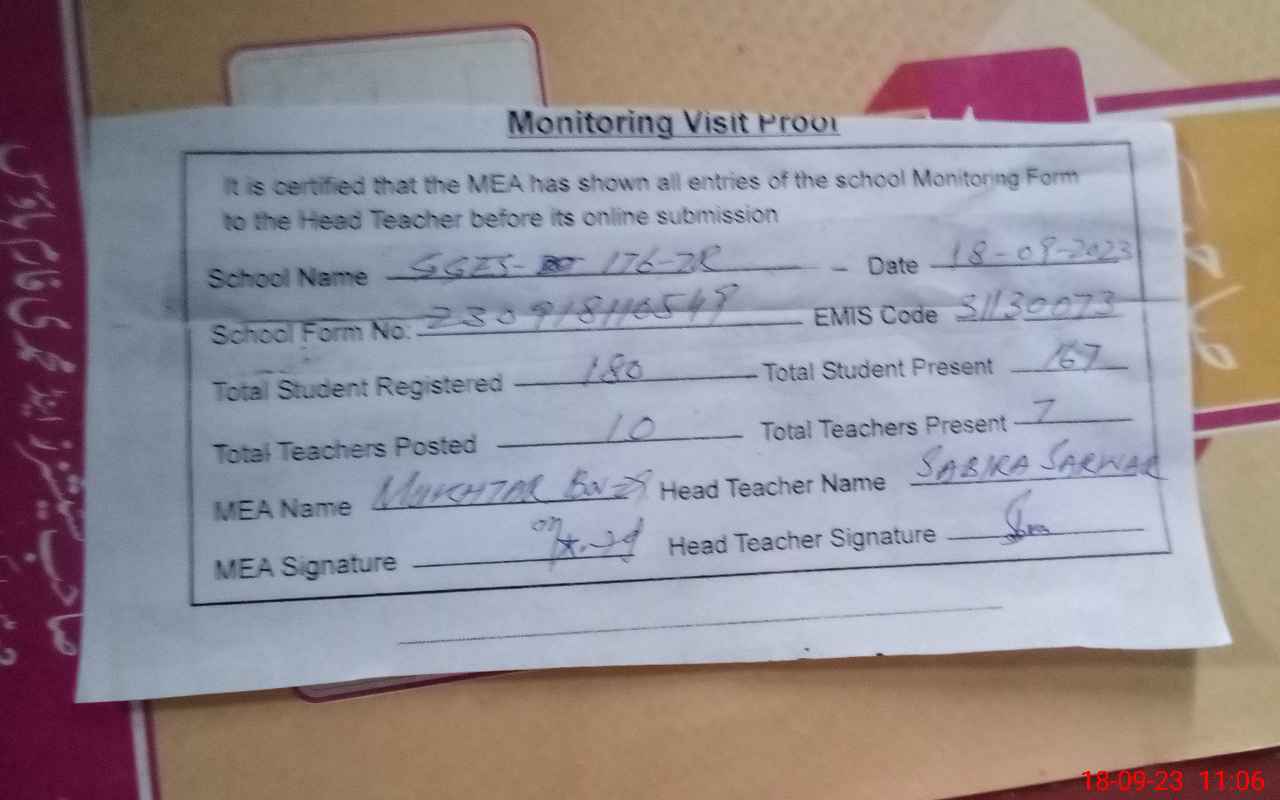 Monitoring Visit Proof
It is certified that the MEA has shown all entries of the school Monitoring Form
to the Head Teacher before its online submission
School Name GGES- 176-7R Date 18-09-2023
School Form No. 230918110549 EMIS Code 31130073
Total Student Registered 180 Total Student Present 167
Total Teachers Posted 10 Total Teachers Present 7
MEA Name MUKHTAR Head Teacher Name SABIRA SARWAR
MEA Signature Head Teacher Signature
18-09-23 11:06